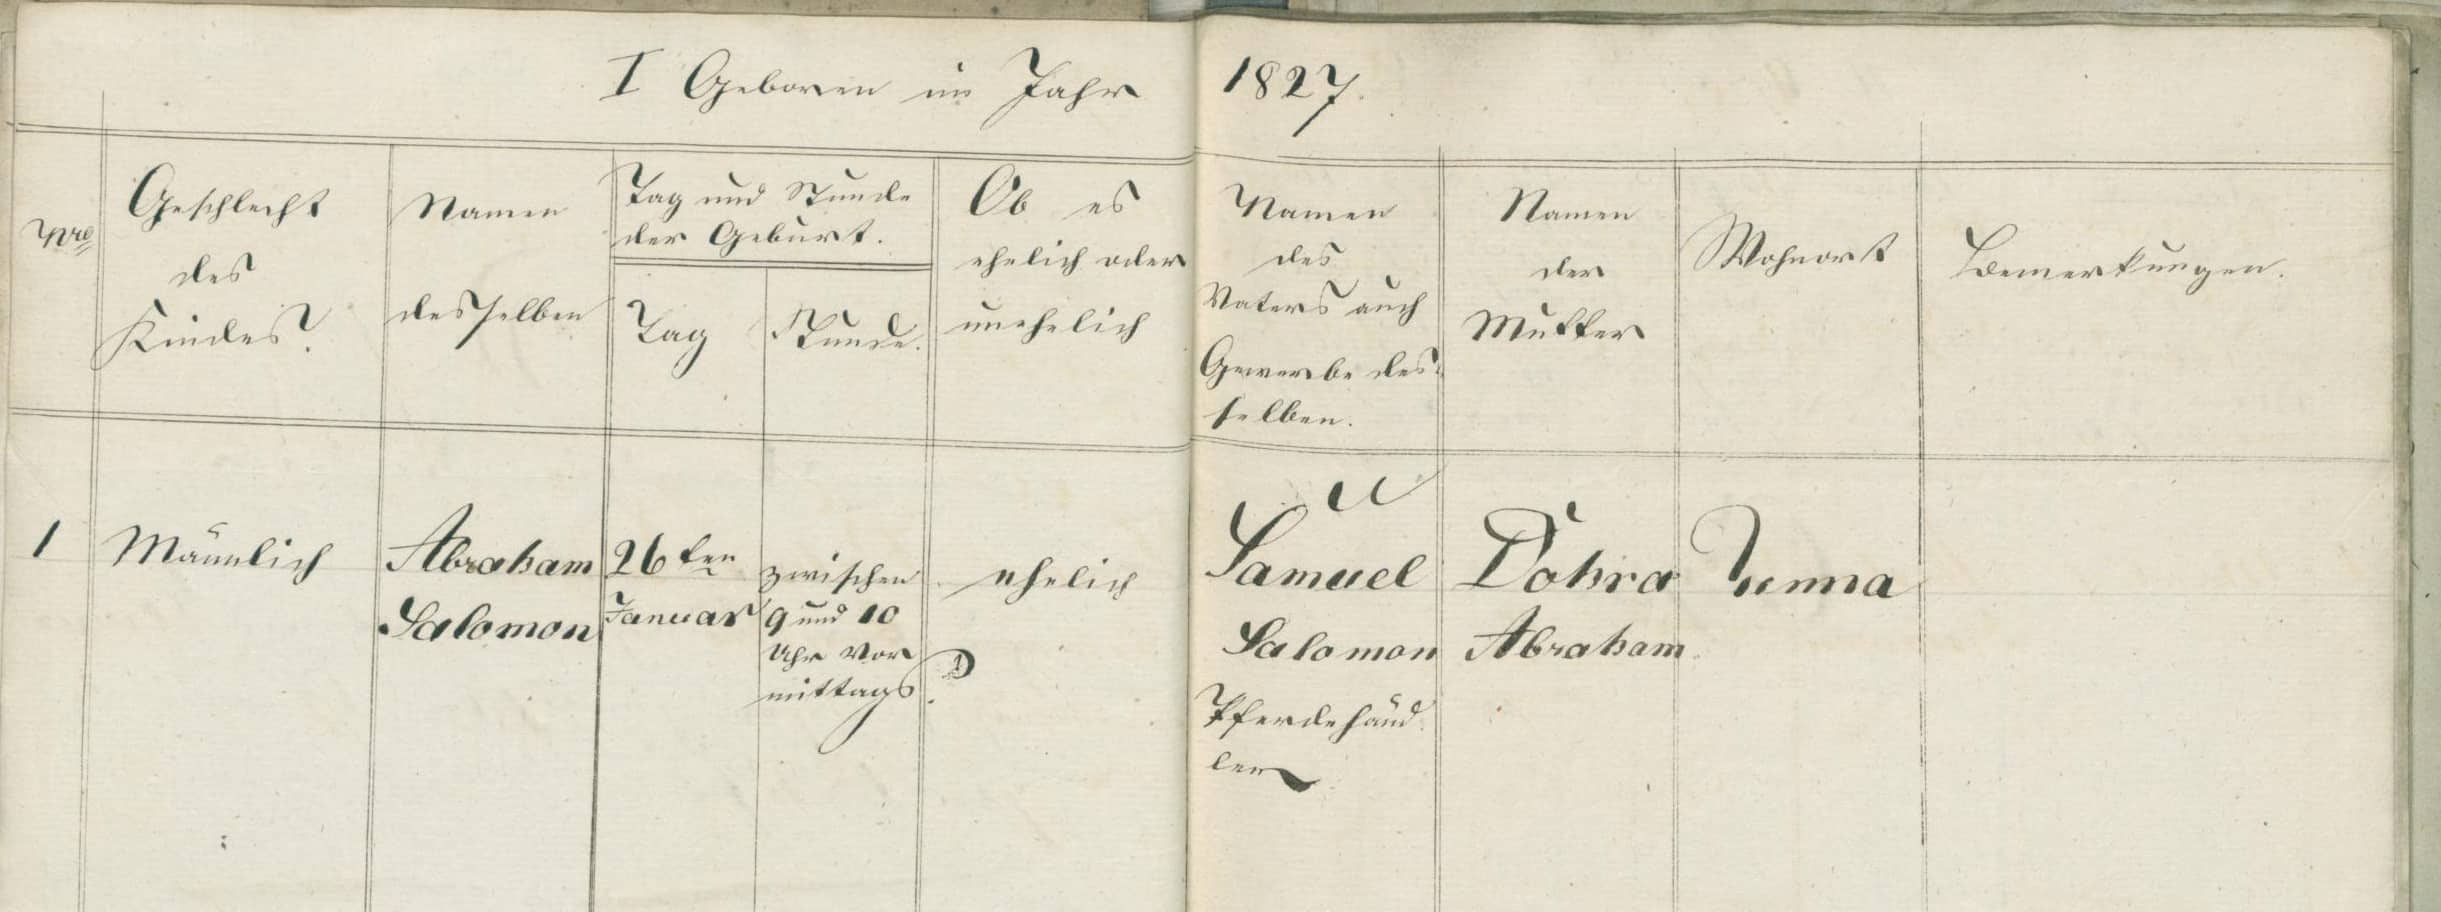 I Geboren im Jahr 1827.
Nro
Geschlecht
des
Kindes
Namen
desselben
Tag und Stunde
der Geburt.
Tag
Stunde.
Ob es
ehelich oder
unehelich
Namen
des
Vaters auch
Gewerbe des-
selben.
Namen
der
Mutter
Wohnort
Bemerkungen.
1
Männlich
Abraham
Salomon
26ten
Januar
zwischen
9 und 10
Uhr Vor
mittags.
ehelich
Samuel
Salomon
Pferdehänd
ler
Dohra
Abraham
Unna